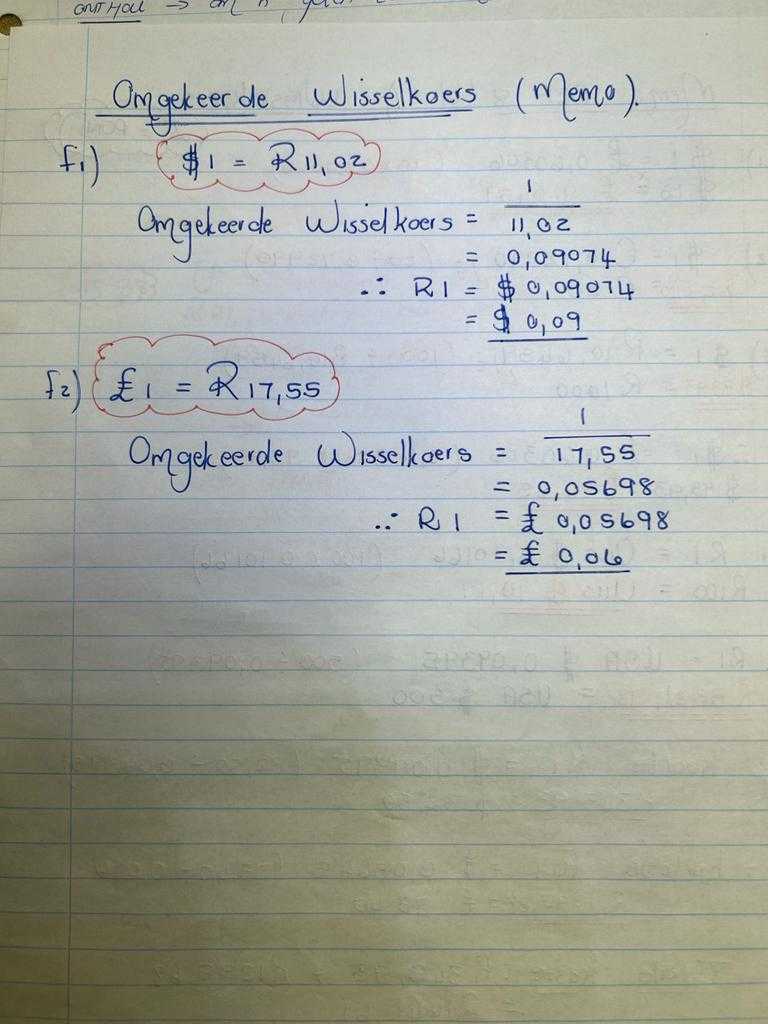 ONTHOU →
Omgekeerde Wisselkoers (Memo).
f1) $1 = R11,02
Omgekeerde Wisselkoers = 1
11,02
= 0,09074
∴ R1 = $ 0,09074
= $ 0,09
f2) £1 = R17,55
Omgekeerde Wisselkoers = 1
17,55
= 0,05698
∴ R1 = £ 0,05698
= £ 0,06